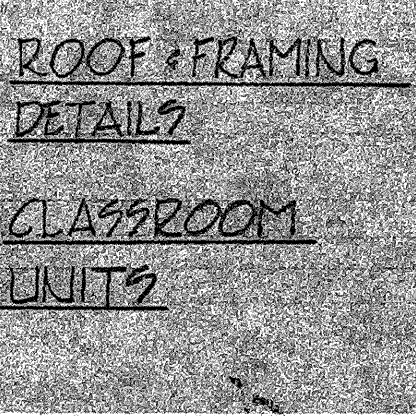 ROOF & FRAMING
DETAILS
CLASSROOM
UNITS